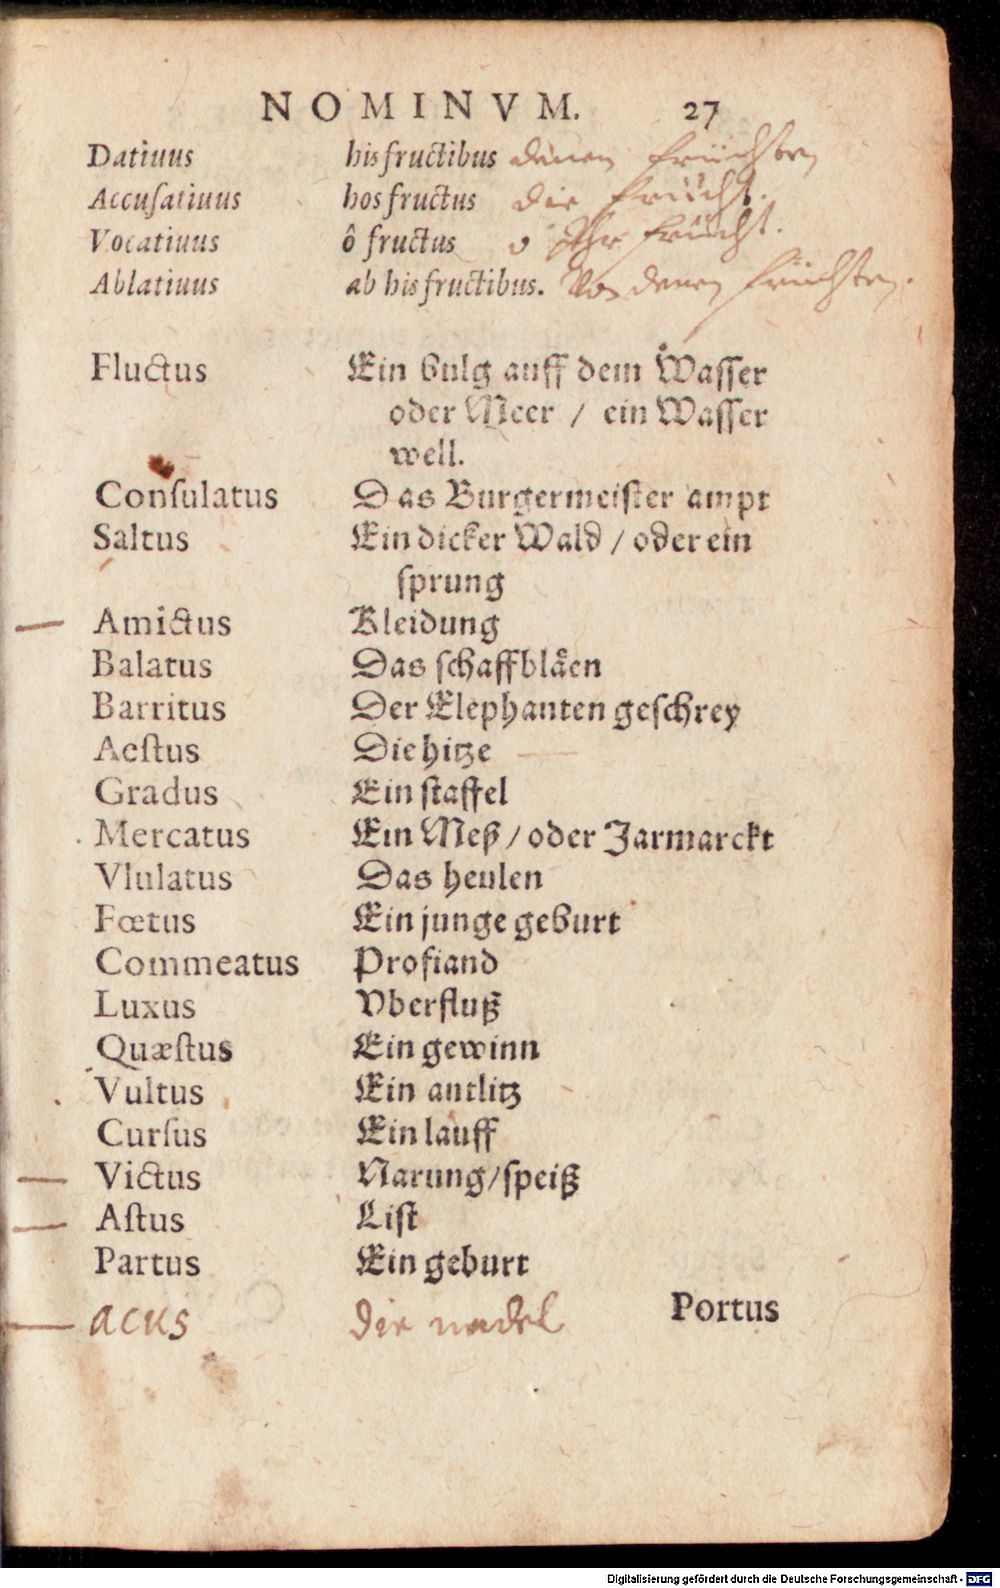 NOMINVM. 27
Datiuus his fructibus denen früchten
Accuſatiuus hos fructus die frücht.
Vocatiuus ô fructus o Ihr frücht.
Ablatiuus ab his fructibus. Von denen früchten.
Fluctus Ein bulg auff dem Waſſer
oder Meer / ein Waſſer
well.
Conſulatus Das Burgermeiſter ampt
Saltus Ein dicker Wald / oder ein
ſprung
Amictus Kleidung
Balatus Das ſchaffblåen
Barritus Der Elephanten geſchrey
Aeſtus Die hitze
Gradus Ein ſtaffel
Mercatus Ein Meß / oder Jarmarckt
Vlulatus Das heulen
Fœtus Ein junge geburt
Commeatus Profiand
Luxus Vberfluß
Quæſtus Ein gewinn
Vultus Ein antlitz
Curſus Ein lauff
Victus Narung/ſpeiß
Aſtus Liſt
Partus Ein geburt
acus die nadel
Portus
Digitalisierung gefördert durch die Deutsche Forschungsgemeinschaft - DFG